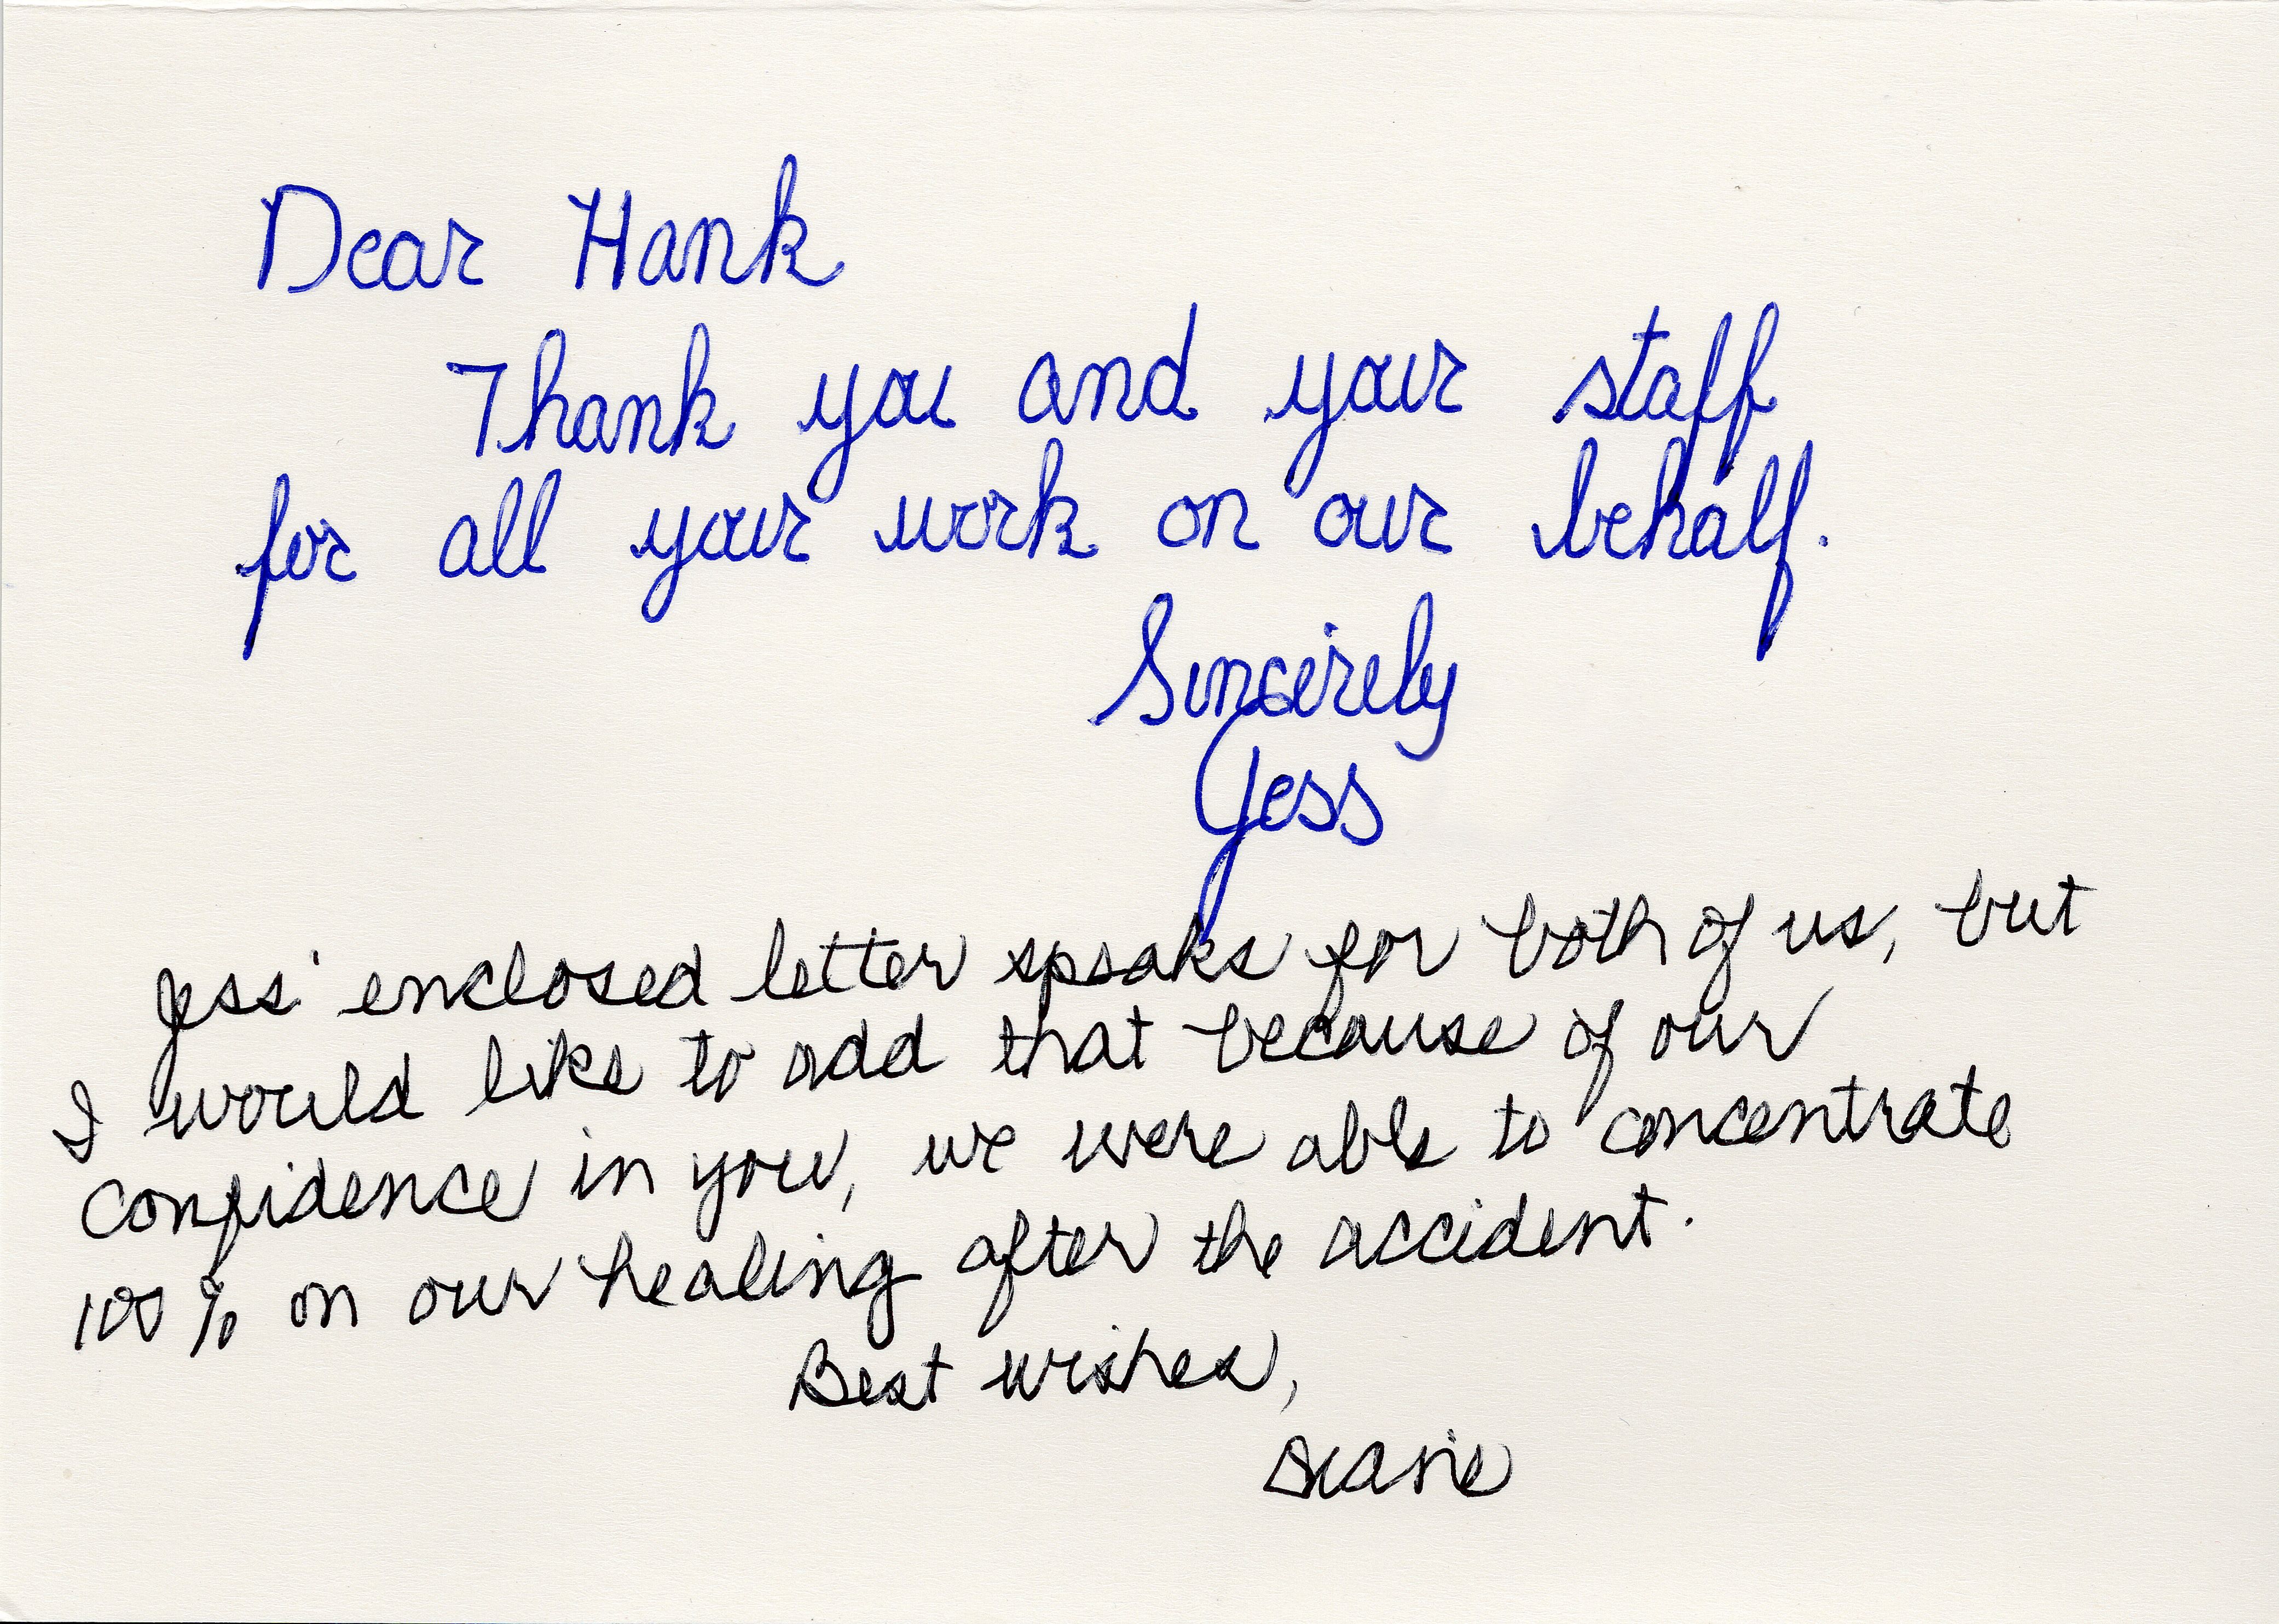 Dear Hank
Thank you and your staff
for all your work on our behalf.
Sincerely
Jess
Jess' enclosed letter speaks for both of us, but
I would like to add that because of our
confidence in you, we were able to concentrate
100% on our healing after the accident.
Best wishes,